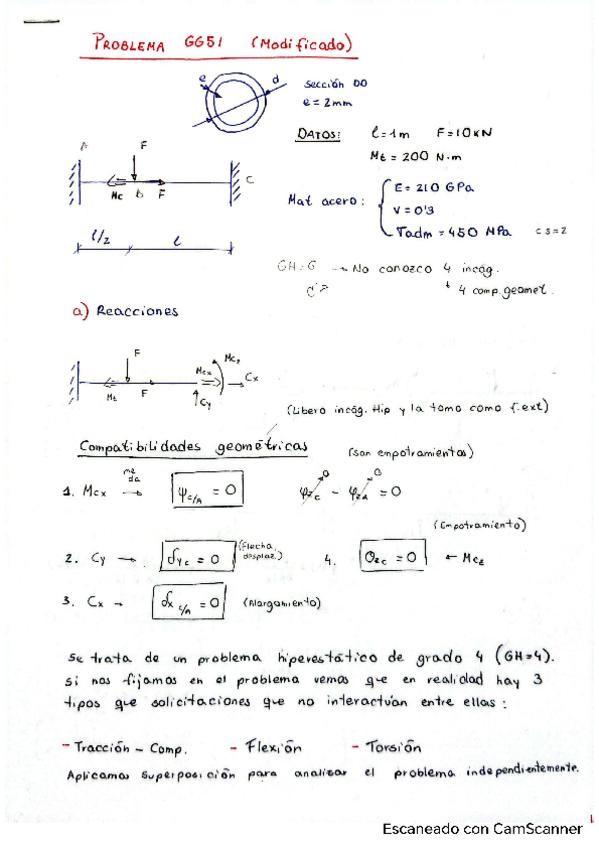 PROBLEMA GG51 (Modificado)
e d sección DO
e = 2mm
DATOS: l=1m F=10KN
Mt = 200 N·m
A F C
Mc b F
Mat acero: E= 210 GPa
V = 0'3
Tadm = 450 MPa cs=2
l/2 l
GH=G → No conozco 4 incóg.
4 comp. geomet.
a) Reacciones
F Mcz
Mcx Cx
Mt F Cy
(Libero incóg. Hip y la tomo como f.ext)
Compatibilidades geométricas (son empotramientos)
1. Mcx me da → ψc/A = 0 φzc - φzA = 0
(Empotramiento)
2. Cy → δyc = 0 (Flecha, desplaz.) 4. θzc = 0 ← Mcz
3. Cx → δx c/A = 0 (Alargamiento)
Se trata de un problema hiperestático de grado 4 (GH=4).
Si nos fijamos en el problema vemos que en realidad hay 3
tipos que solicitaciones que no interactúan entre ellas:
- Tracción - Comp. - Flexión - Torsión
Aplicamos superposición para analizar el problema independientemente.
1
Escaneado con CamScanner